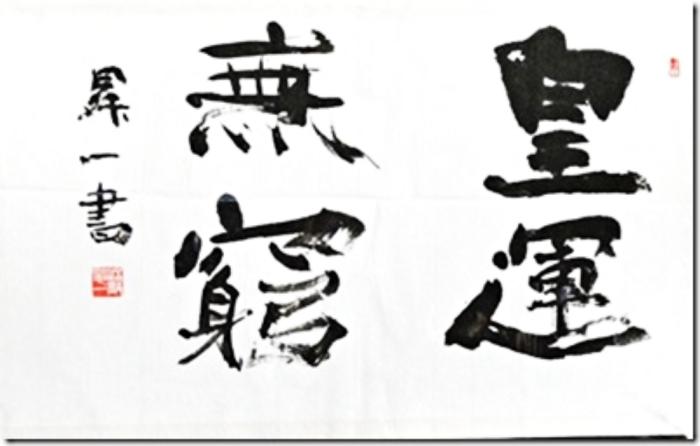 皇運
無窮
昇一書